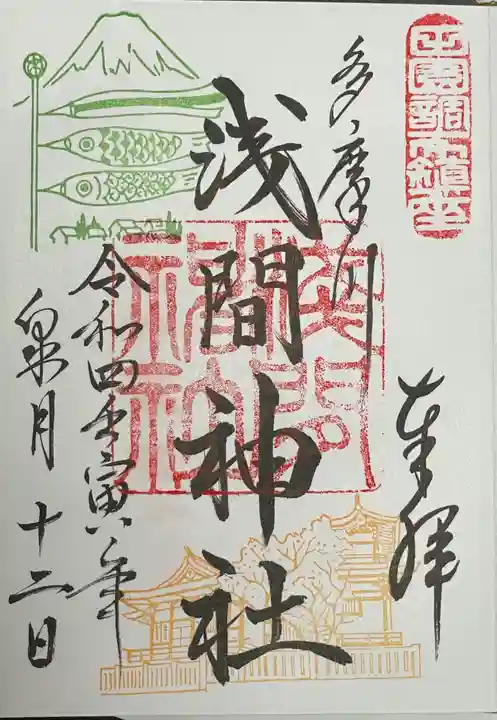 田園調布鎮座
奉拝
多摩川
浅間神社
令和四年寅年
皐月十二日